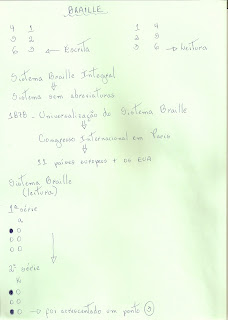 BRAILLE
4 1 1 4
5 2 2 5
6 3 ← Escrita 3 6 → Leitura
Sistema Braille Integral
⇓
Sistema sem abreviaturas
1878 - Universalização do Sistema Braille
⇓
Congresso Internacional em Paris
⇓
11 países europeus + os EUA
Sistema Braille
(leitura)
1ª série
a
2ª série
k
→ foi acrescentado um ponto ③